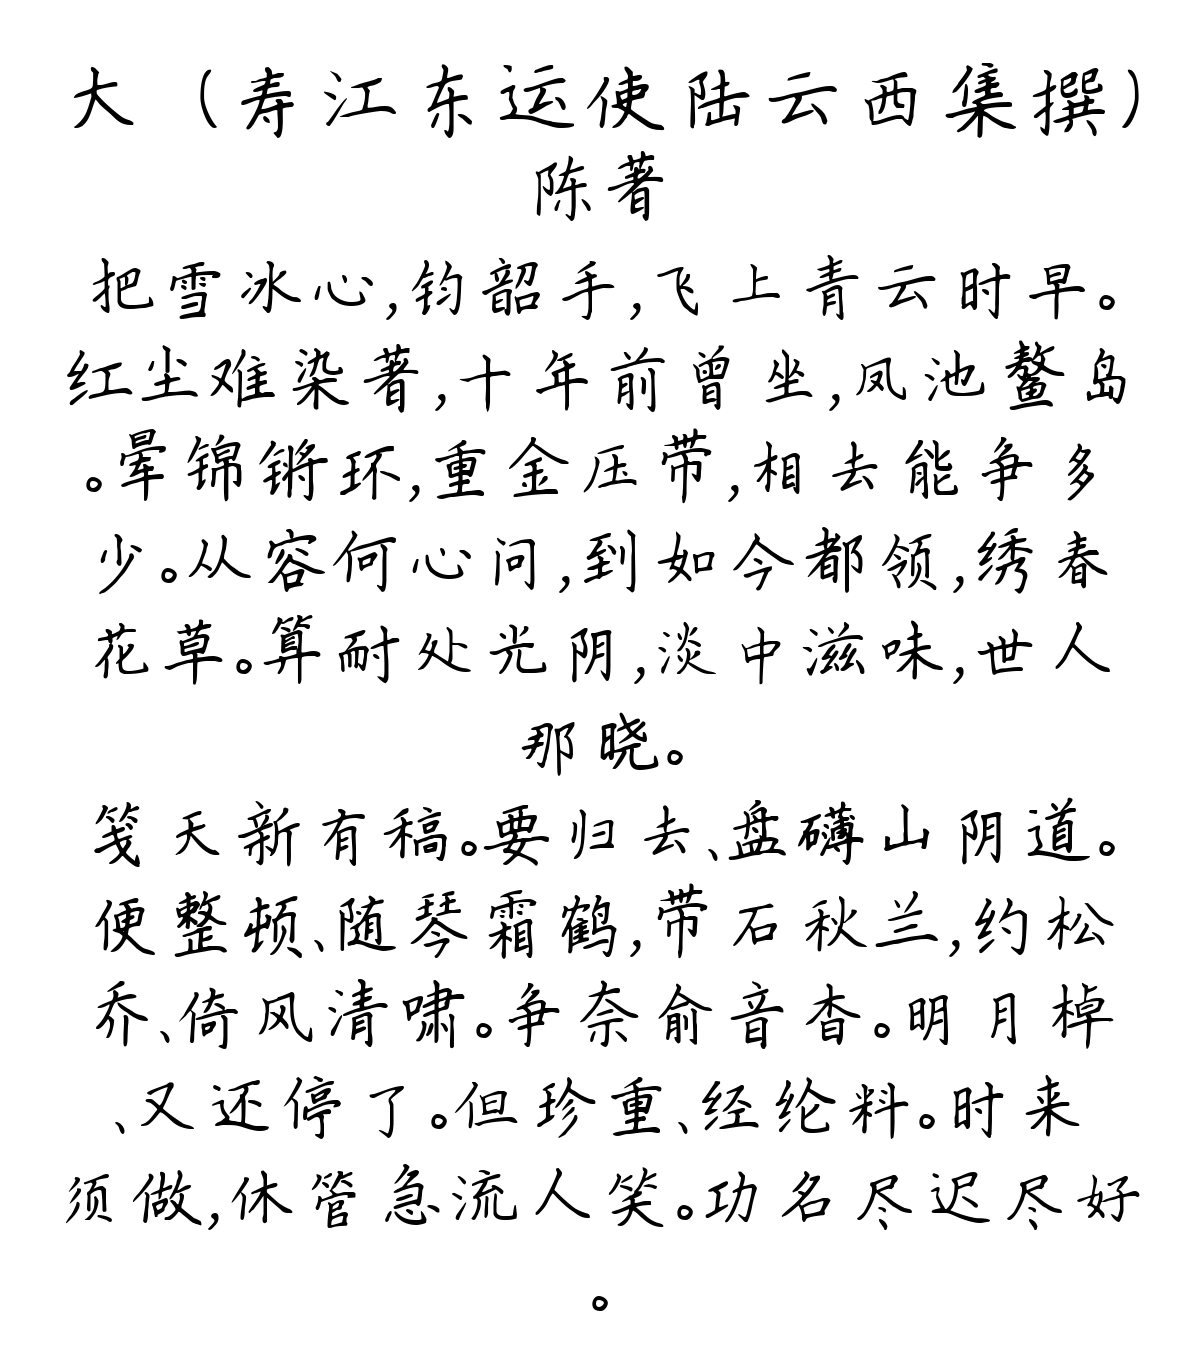 大（寿江东运使陆云西集撰）
陈著
把雪冰心,钧韶手,飞上青云时早。
红尘难染著,十年前曾坐,凤池鳌岛
。晕锦锵环,重金压带,相去能争多
少。从容何心问,到如今都领,绣春
花草。算耐处光阴,淡中滋味,世人
那晓。
笺天新有稿。要归去、盘礴山阴道。
便整顿、随琴霜鹤,带石秋兰,约松
乔、倚风清啸。争奈俞音杳。明月棹
、又还停了。但珍重、经纶料。时来
须做,休管急流人笑。功名尽迟尽好
。